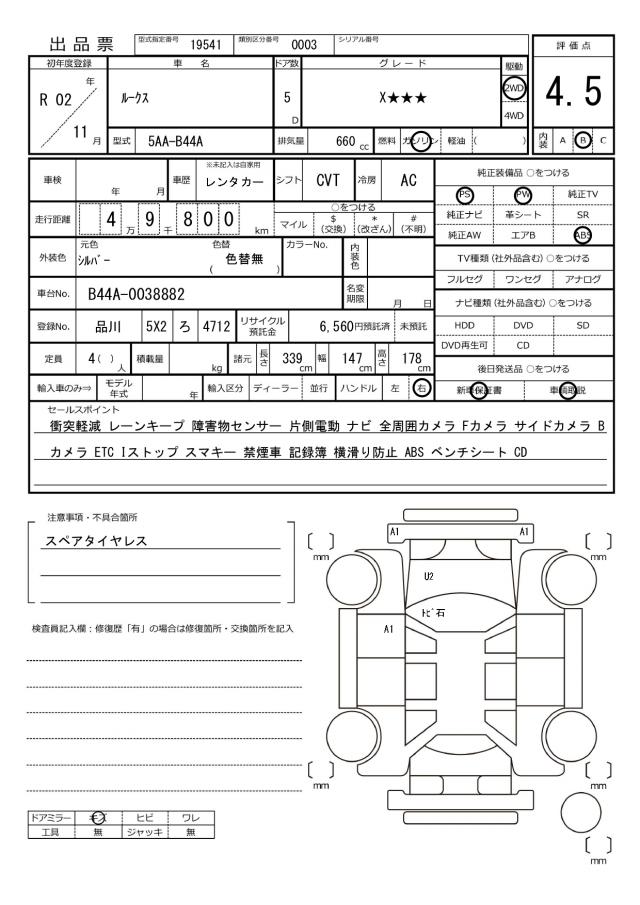 出品票 型式指定番号 19541 類別区分番号 0003 シリアル番号
評価点
4.5
内装 A B C
初年度登録 車名 ドア数 グレード 駆動
R 02 年 11 月
ﾙｰｸｽ 5 D X★★★ 2WD 4WD
型式 5AA-B44A 排気量 660 cc 燃料 ガソリン 軽油 ( )
車検 年 月 車歴 ※未記入は自家用 レンタカー シフト CVT 冷房 AC
走行距離 4 万 9 千 8 0 0 km
○をつける
マイル $ (交換) * (改ざん) # (不明)
外装色 元色 ｼﾙﾊﾞｰ 色替 ( 色替無 ) カラーNo. 内装色
車台No. B44A-0038882 名変期限 月 日
登録No. 品川 5X2 ろ 4712 リサイクル預託金 6,560円預託済 未預託
定員 4( ) 人 積載量 kg 諸元 長さ 339 cm 幅 147 cm 高さ 178 cm
輸入車のみ⇒ モデル年式 年 輸入区分 ディーラー 並行 ハンドル 左 右
純正装備品 ○をつける
PS PW 純正TV
純正ナビ 革シート SR
純正AW エアB ABS
TV種類 (社外品含む) ○をつける
フルセグ ワンセグ アナログ
ナビ種類 (社外品含む) ○をつける
HDD DVD SD
DVD再生可 CD
後日発送品 ○をつける
新車保証書 車輌取説
セールスポイント
衝突軽減 レーンキープ 障害物センサー 片側電動 ナビ 全周囲カメラ Fカメラ サイドカメラ B
カメラ ETC Iストップ スマキー 禁煙車 記録簿 横滑り防止 ABS ベンチシート CD
注意事項・不具合箇所
スペアタイヤレス
検査員記入欄：修復歴「有」の場合は修復箇所・交換箇所を記入
A1 A1
U2
ﾄﾋﾞ石
A1
mm mm
mm mm
mm
ドアミラー キズ ヒビ ワレ
工具 無 ジャッキ 無